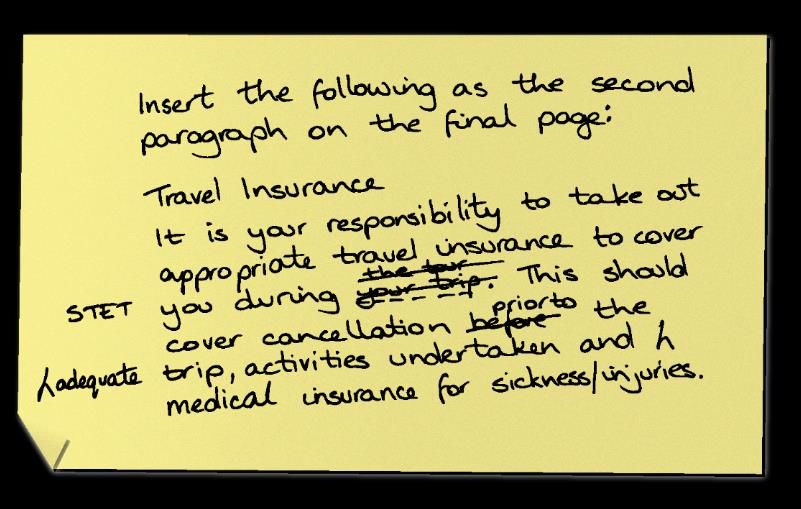 Insert the following as the second
paragraph on the final page:
Travel Insurance
It is your responsibility to take out
appropriate travel insurance to cover
the tour
STET you during your trip. This should
prior to
cover cancellation before the
ʎadequate trip, activities undertaken and ʎ
medical insurance for sickness/injuries.